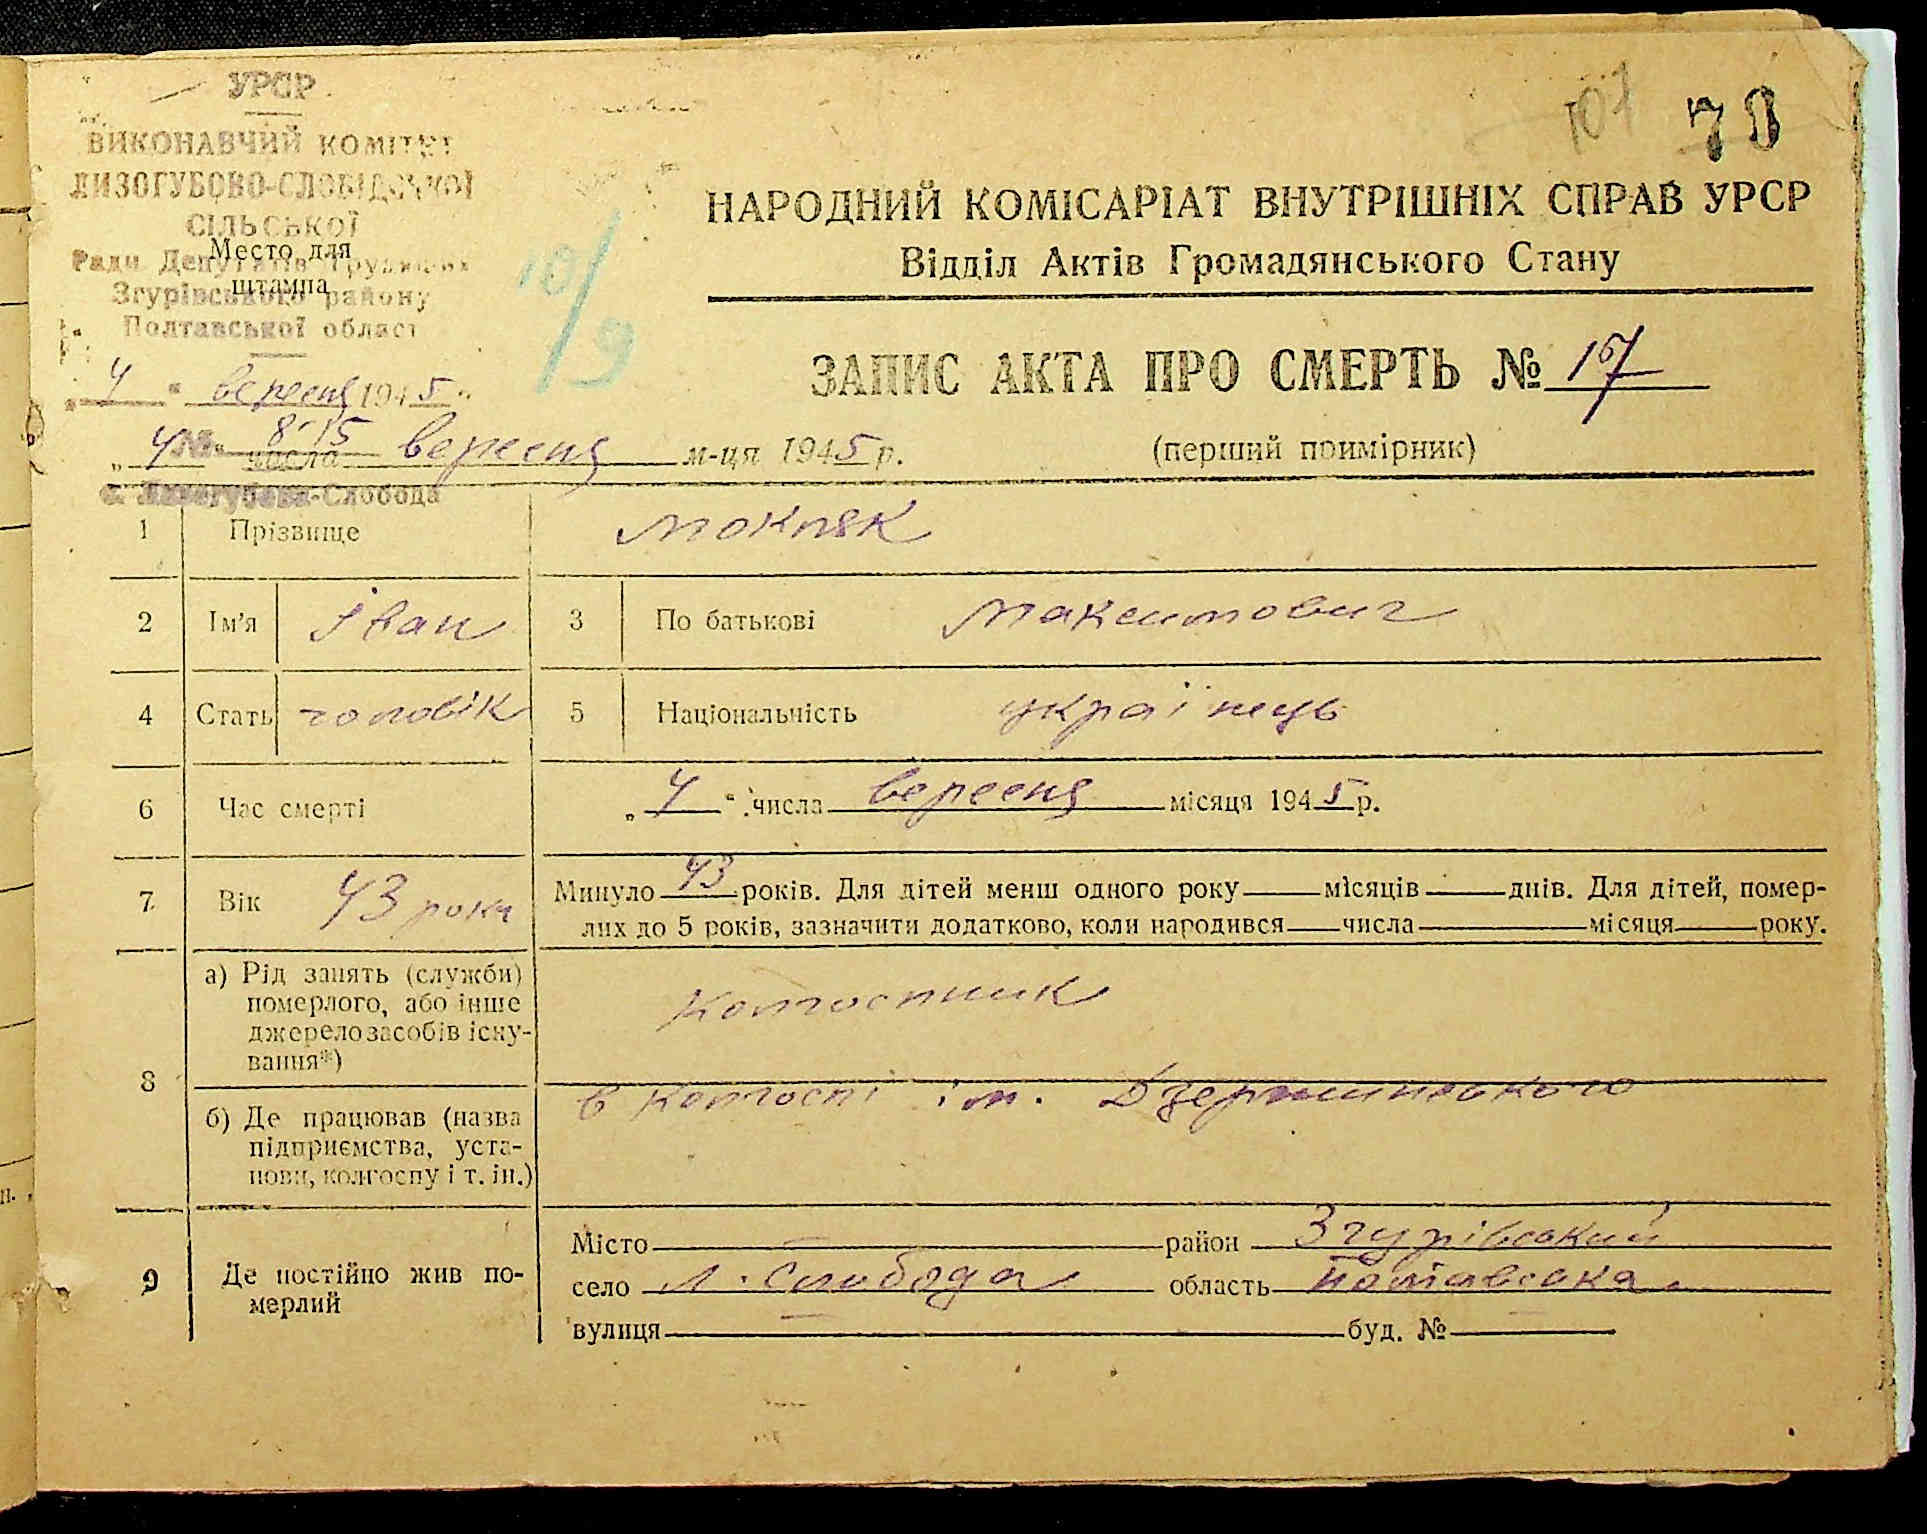 УРСР
ВИКОНАВЧИЙ КОМІТЕТ
ЛИЗОГУБОВО-СЛОБІДСЬКОЇ
СІЛЬСЬКОЇ
Ради Депутатів Трудящих
Место для
штампа
Згурівського району
Полтавської област
"4" вересня 1945
№ 8-15
107 78
10/9
НАРОДНИЙ КОМІСАРІАТ ВНУТРІШНІХ СПРАВ УРСР
Відділ Актів Громадянського Стану
ЗАПИС АКТА ПРО СМЕРТЬ № 17
„4" числа вересня м-ця 1945 р. (перший примірник)
с. Лизогубова-Слобода
1 Прізвище Мокляк
2 Ім'я Іван 3 По батькові Максимович
4 Стать чоловік 5 Національність українець
6 Час смерті „4" числа вересня місяця 1945 р.
7 Вік 43 роки Минуло 43 років. Для дітей менш одного року місяців днів. Для дітей, помер-
лих до 5 років, зазначити додатково, коли народився числа місяця року.
8 а) Рід занять (служби)
померлого, або інше
джерело засобів існу-
вання*)
Колгоспник
б) Де працював (назва
підприємства, уста-
нови, колгоспу і т. ін.)
в колгоспі ім. Дзержинського
9 Де постійно жив по-
мерлий
Місто район Згурівський
село Л. Слобода область Полтавська
вулиця буд. №